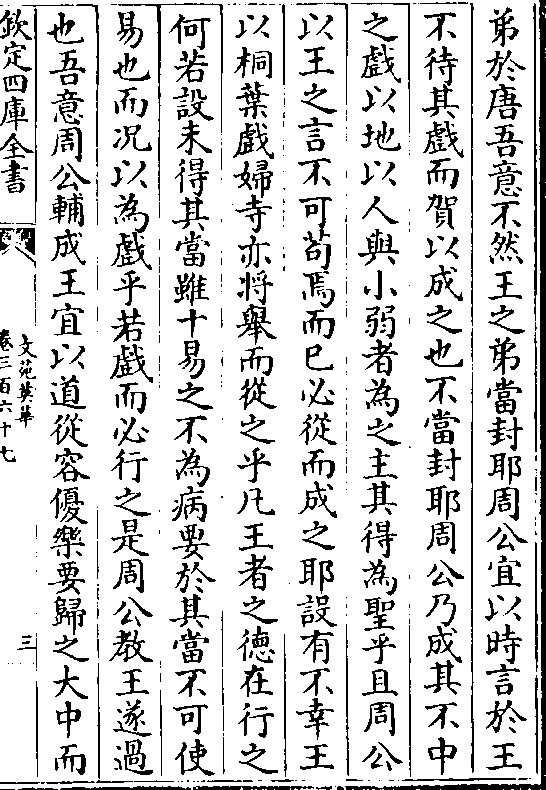 弟於唐吾意不然王之弟當封耶周公宜以時言於王
不待其戲而賀以成之也不當封耶周公乃成其不中
之戲以地以人與小弱者為之主其得為聖乎且周公
以王之言不可苟焉而已必從而成之耶設有不幸王
以桐葉戲婦寺亦將舉而從之乎凡王者之德在行之
何若設未得其當雖十易之不為病要於其當不可使
易也而況以為戲乎若戲而必行之是周公教王遂過
也吾意周公輔成王宜以道從容優樂要歸之大中而
欽定四庫全書
文苑英華
卷三百六十七
三